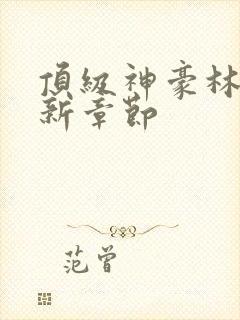 頂級神豪林
新章節
范曾